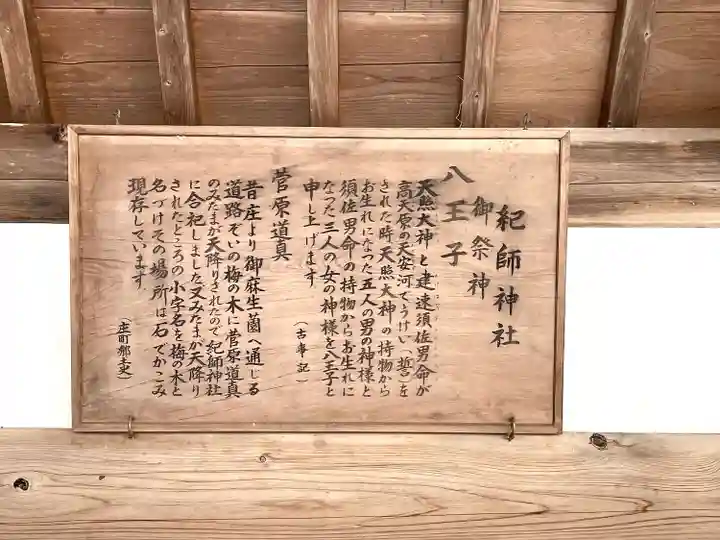 紀師神社
御祭神
八王子
天照大神と建速須佐男命が
高天原の天安河でうけい(誓)を
された時天照大神の持物から
お生れになった五人の男の神様と
須佐男命の持物からお生れに
なった三人の女の神様を八王子と
申し上げます
(古事記)
菅原道真
昔庄より御麻生薗へ通じる
道路ぞいの梅の木に菅原道真
のみたまが天降りされたので紀師神社
に合祀しました又みたまが天降り
されたところの小字名を梅の木と
名づけその場所は石でかこみ
現存しています
(庄町郷土史)